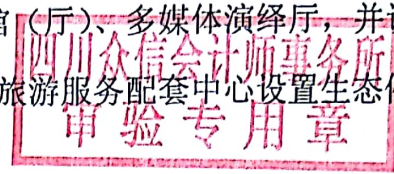 （厅）、多媒体演绎厅，并
四川众信会计师事务所
旅游服务配套中心设置生态
审验专用章